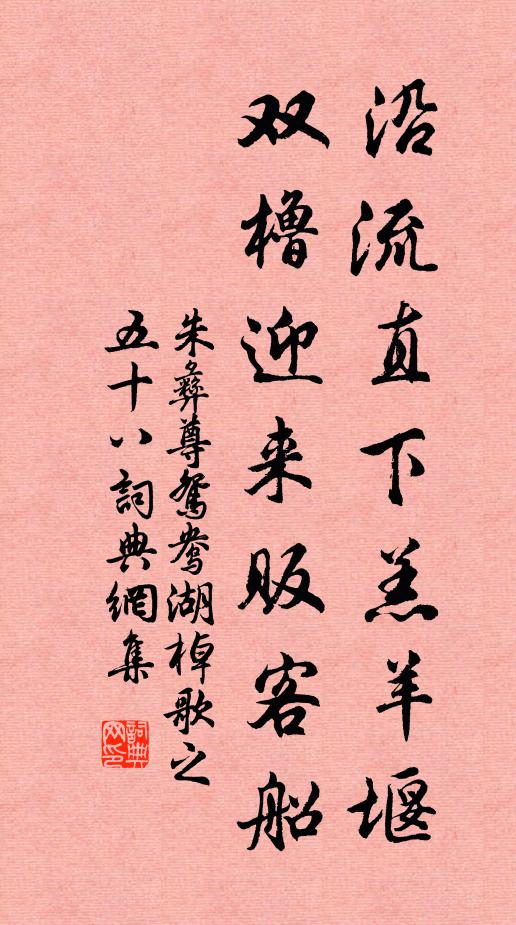 沿流直下羔羊堰
双橹迎来贩客船
朱彝尊鸳鸯湖棹歌之
五十八詞典網集
詞典网印